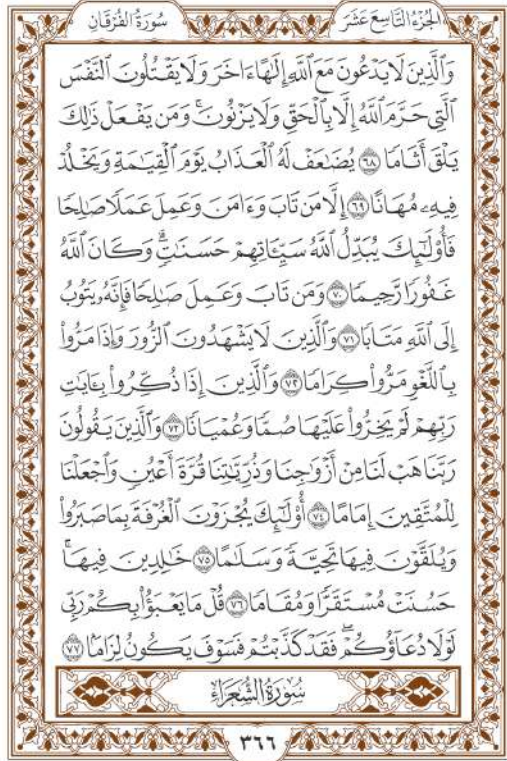 الجُزْءُ التَّاسِعَ عَشَرَ
سُورَةُ الفُرْقَانِ
وَٱلَّذِينَ لَا يَدْعُونَ مَعَ ٱللَّهِ إِلَٰهًا ءَاخَرَ وَلَا يَقْتُلُونَ ٱلنَّفْسَ
ٱلَّتِي حَرَّمَ ٱللَّهُ إِلَّا بِٱلْحَقِّ وَلَا يَزْنُونَۚ وَمَن يَفْعَلْ ذَٰلِكَ
يَلْقَ أَثَامًا ٦٨ يُضَٰعَفْ لَهُ ٱلْعَذَابُ يَوْمَ ٱلْقِيَٰمَةِ وَيَخْلُدْ
فِيهِۦ مُهَانًا ٦٩ إِلَّا مَن تَابَ وَءَامَنَ وَعَمِلَ عَمَلًا صَٰلِحًا
فَأُوْلَٰٓئِكَ يُبَدِّلُ ٱللَّهُ سَيِّـَٔاتِهِمْ حَسَنَٰتٍۗ وَكَانَ ٱللَّهُ
غَفُورًا رَّحِيمًا ٧٠ وَمَن تَابَ وَعَمِلَ صَٰلِحًا فَإِنَّهُۥ يَتُوبُ
إِلَى ٱللَّهِ مَتَابًا ٧١ وَٱلَّذِينَ لَا يَشْهَدُونَ ٱلزُّورَ وَإِذَا مَرُّواْ
بِٱللَّغْوِ مَرُّواْ كِرَامًا ٧٢ وَٱلَّذِينَ إِذَا ذُكِّرُواْ بِـَٔايَٰتِ
رَبِّهِمْ لَمْ يَخِرُّواْ عَلَيْهَا صُمًّا وَعُمْيَانًا ٧٣ وَٱلَّذِينَ يَقُولُونَ
رَبَّنَا هَبْ لَنَا مِنْ أَزْوَٰجِنَا وَذُرِّيَّٰتِنَا قُرَّةَ أَعْيُنٍ وَٱجْعَلْنَا
لِلْمُتَّقِينَ إِمَامًا ٧٤ أُوْلَٰٓئِكَ يُجْزَوْنَ ٱلْغُرْفَةَ بِمَا صَبَرُواْ
وَيُلَقَّوْنَ فِيهَا تَحِيَّةً وَسَلَٰمًا ٧٥ خَٰلِدِينَ فِيهَاۚ
حَسُنَتْ مُسْتَقَرًّا وَمُقَامًا ٧٦ قُلْ مَا يَعْبَؤُاْ بِكُمْ رَبِّي
لَوْلَا دُعَآؤُكُمْۖ فَقَدْ كَذَّبْتُمْ فَسَوْفَ يَكُونُ لِزَامًۢا ٧٧
سُورَةُ الشُّعَرَاءِ
٣٦٦